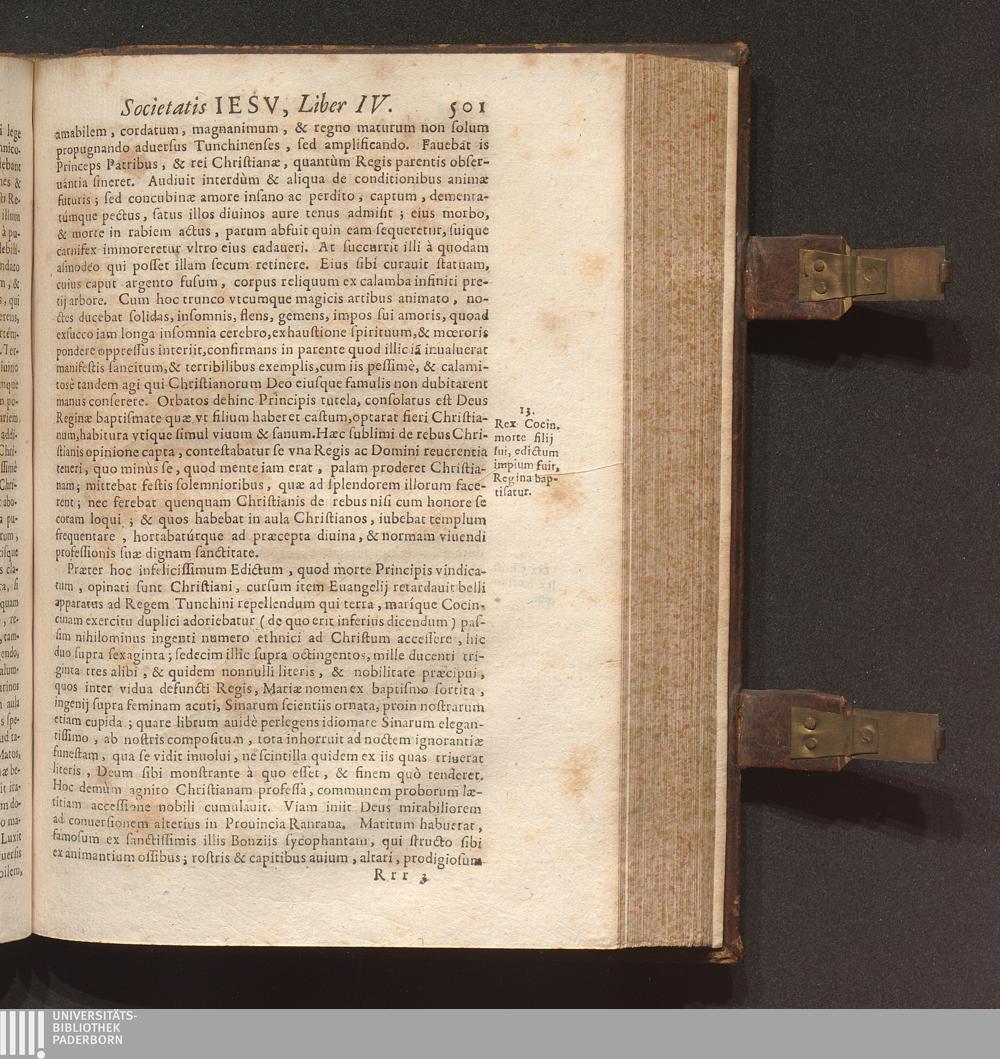 Societatis IESV, Liber IV. 501
amabilem, cordatum, magnanimum, & regno maturum non solum
propugnando aduersus Tunchinenses, sed amplificando. Fauebat is
Princeps Patribus, & rei Christianæ, quantùm Regis parentis obser-
uantia sineret. Audiuit interdùm & aliqua de conditionibus animæ
futuris; sed concubinæ amore insano ac perdito, captum, dementa-
túmque pectus, satus illos diuinos aure tenus admisit; eius morbo,
& morte in rabiem actus, parum abfuit quin eam sequeretur, suique
carnifex immoreretur vltro eius cadaueri. At succurrit illi à quodam
asmodeo qui posset illam secum retinere. Eius sibi curauit statuam,
cuius caput argento fusum, corpus reliquum ex calamba infiniti pre-
tij arbore. Cum hoc trunco vtcumque magicis artibus animato, no-
ctes ducebat solidas, insomnis, flens, gemens, impos sui amoris, quoad
exsucco iam longa insomnia cerebro, exhaustione spirituum, & mœroris
pondere oppressus interijt, confirmans in parente quod illic iã inualuerat
manifestis sancitum, & terribilibus exemplis, cum iis pessimè, & calami-
tosè tandem agi qui Christianorum Deo eiusque famulis non dubitarent
manus conserere. Orbatos dehinc Principis tutela, consolatus est Deus
Reginæ baptismate quæ vt filium haberet castum, optarat fieri Christia-
num, habitura vtique simul viuum & sanum. Hæc sublimi de rebus Chri-
stianis opinione capta, contestabatur se vna Regis ac Domini reuerentia
teneri, quo minùs se, quod mente iam erat, palam proderet Christia-
nam; mittebat festis solemnioribus, quæ ad splendorem illorum face-
rent; nec ferebat quenquam Christianis de rebus nisi cum honore se
coram loqui; & quos habebat in aula Christianos, iubebat templum
frequentare, hortabatúrque ad præcepta diuina, & normam viuendi
professionis suæ dignam sanctitate.
13.
Rex Cocin.
morte filij
sui, edictum
impium fuit,
Regina bap-
tisatur.
Præter hoc infelicissimum Edictum, quod morte Principis vindica-
tum, opinati sunt Christiani, cursum item Euangelij retardauit belli
apparatus ad Regem Tunchini repellendum qui terra, maríque Cocin-
cinam exercitu duplici adoriebatur (de quo erit inferius dicendum) pas-
sim nihilominus ingenti numero ethnici ad Christum accessere, hic
duo supra sexaginta; sedecim illic supra octingentos, mille ducenti tri-
ginta tres alibi, & quidem nonnulli literis, & nobilitate præcipui,
quos inter vidua defuncti Regis, Mariæ nomen ex baptismo sortita,
ingenij supra feminam acuti, Sinarum scientiis ornata, proin nostrarum
etiam cupida; quare librum auidè perlegens idiomate Sinarum elegan-
tissimo, ab nostris compositum, tota inhorruit ad noctem ignorantiæ
funestam, qua se vidit inuolui, ne scintilla quidem ex iis quas triuerat
literis, Deum sibi monstrante à quo esset, & finem quò tenderet.
Hoc demùm agnito Christianam professa, communem proborum læ-
titiam accessione nobili cumulauit. Viam iniit Deus mirabiliorem
ad conuersionem alterius in Prouincia Ranrana. Maritum habuerat,
famosum ex sanctissimis illis Bonziis sycophantam, qui structo sibi
ex animantium ossibus; rostris & capitibus auium, altari, prodigiosum
Rrr 3
UNIVERSITÄTS-
BIBLIOTHEK
PADERBORN